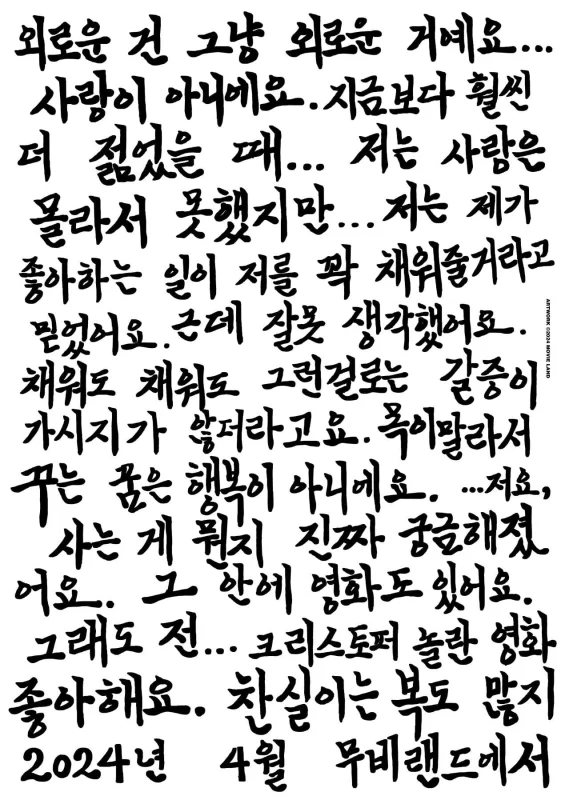 외로운 건 그냥 외로운 거예요...
사랑이 아니에요. 지금보다 훨씬
더 젊었을 때... 저는 사랑은
몰라서 못했지만... 저는 제가
좋아하는 일이 저를 꽉 채워줄거라고
믿었어요. 근데 잘못 생각했어요.
ARTWORK ©2024 MOVIE LAND
채워도 채워도 그런걸로는 갈증이
가시지가 않더라고요. 목이말라서
꾸는 꿈은 행복이 아니에요. ...저요,
사는 게 뭔지 진짜 궁금해졌
어요. 그 안에 영화도 있어요.
그래도 전... 크리스토퍼 놀란 영화
좋아해요. 찬실이는 복도 많지
2024년 4월 무비랜드에서